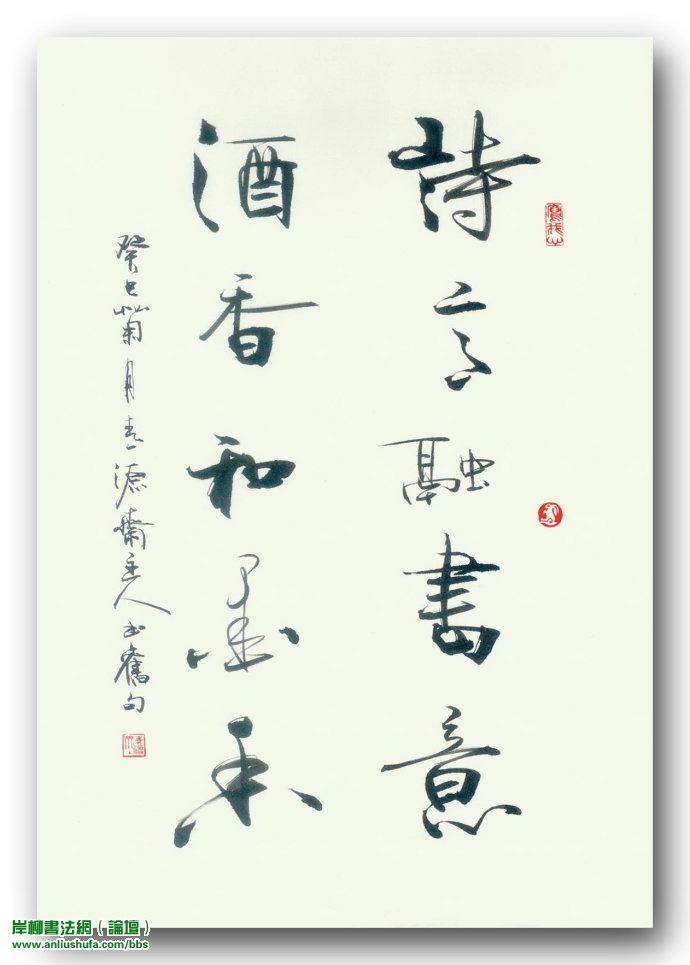 詩言融書意
酒香和墨
癸巳菊月源齋主人書舊句
岸柳書法網（論壇）
www.anliushufa.com/bbs